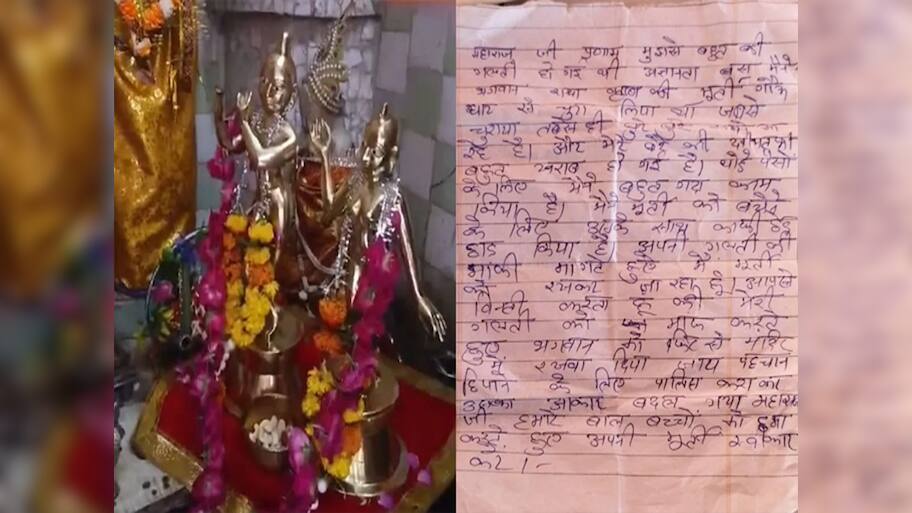 महाराज जी प्रणाम मुझसे बहुत बड़ी
गलती हो गई थी अज्ञानता बस मैंने
भगवान राधा कृष्ण की मूर्ती गौऊ
घाट से चुरा लिया था जबसे
चुराया तबसे ही
रहे है। और मेरे बेटे की तबीयत भी
बहुत खराब हो गई है। थोडे पैसो
के लिए मैंने बहुत गंदा काम
किया है। मैंने मूर्ती को बेचने
के लिए उसके साथ काफी छेड़
छाड़ किया है अपनी गलती की
माफी मांगते हुए मैं मूर्ती
को रखकर जा रहा हूँ। आपसे
विन्ती करता हूँ की मेरी
गलती को माफ करते
हुए भगवान को फिर से मंदिर
में रखवा दिया जाय पहचान
छिपाने के लिए पालिस करा कर
उसका आकार बदला गया महाराज
जी हमारे बाल बच्चो को क्षमा
करते हुए अपनी मूर्ती स्वीकार
करे।-